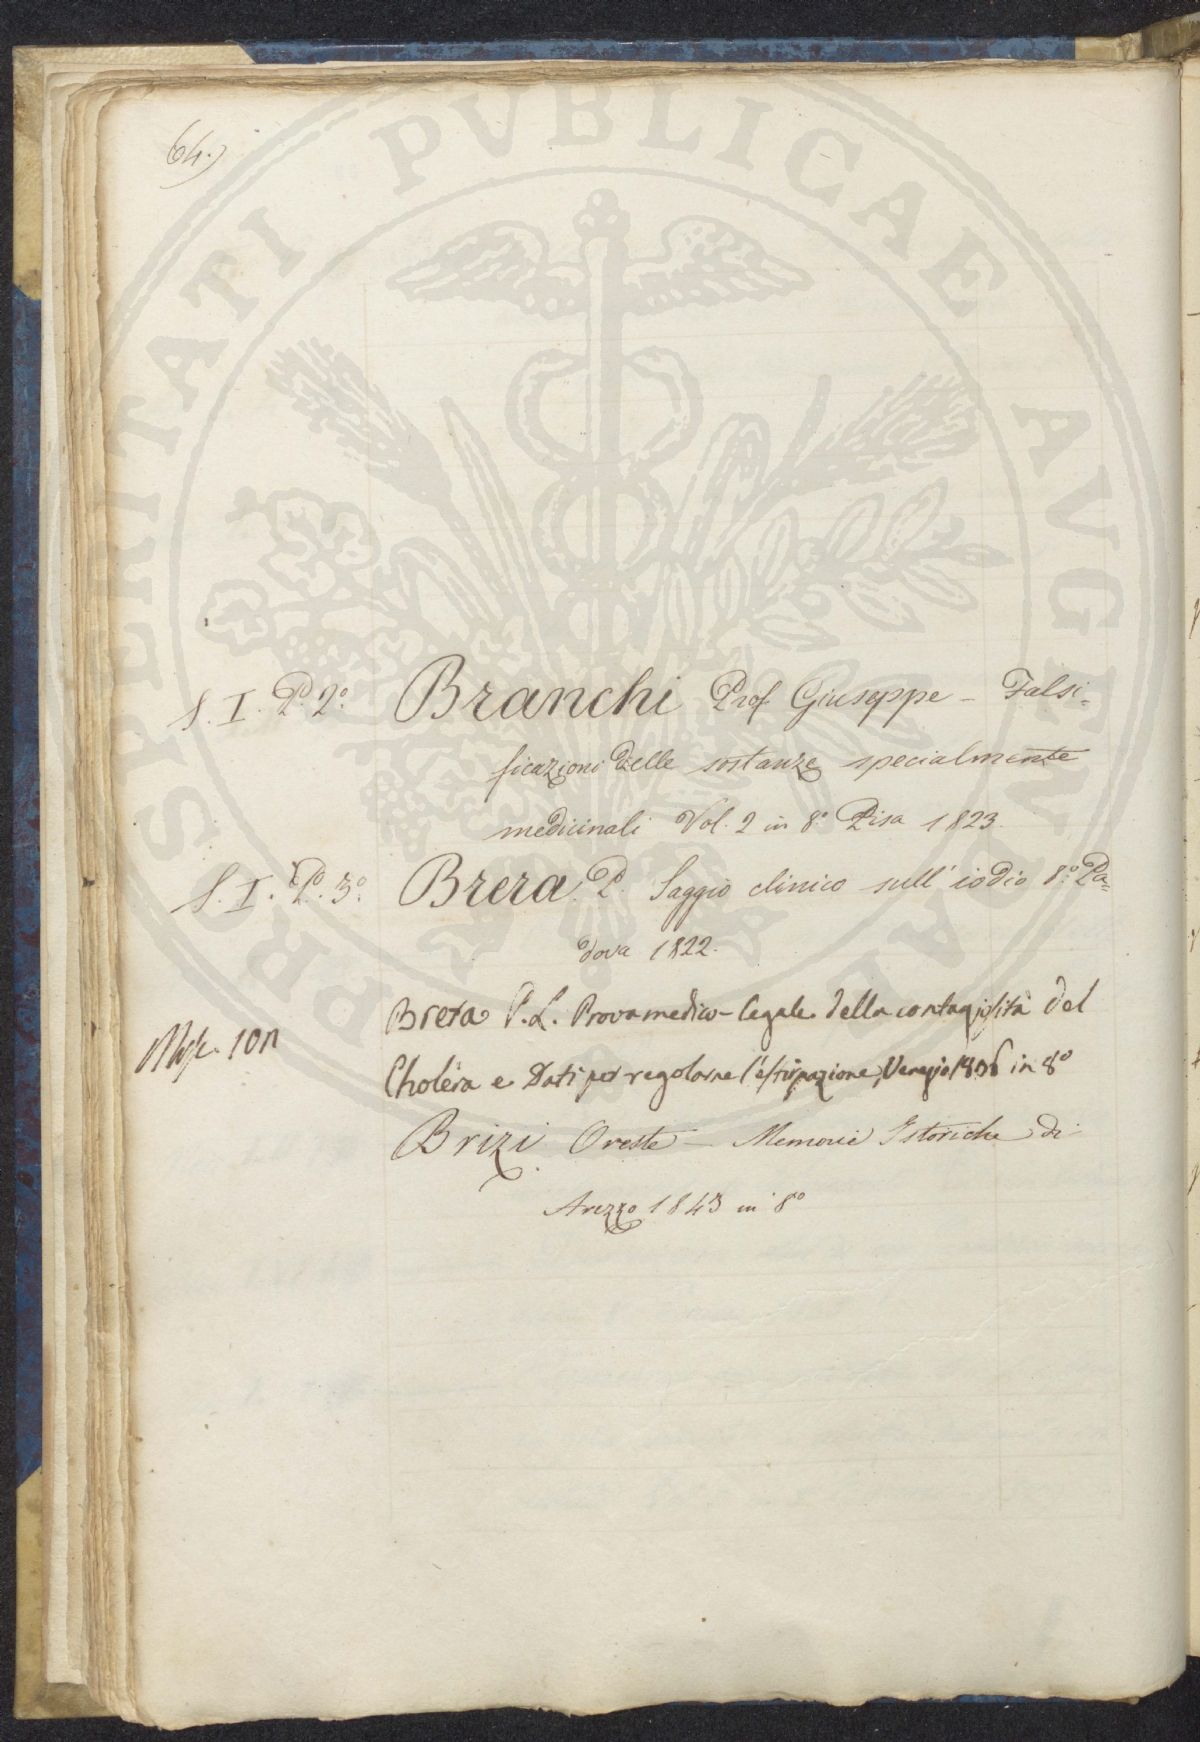 64.)
PROSPERITATI PVBLICAE AVGENDAE
S. I. P.º 2.º Branchi Prof. Giuseppe - Falsi-
ficazioni delle sostanze specialmente
medicinali Vol. 2 in 8.º Pisa 1823.
S. I. P.º 3.º Brera P. Saggio clinico sull' iodio 8.º Pa-
dova 1822.
Brera P. L. Prova medico-legale della contagiosità del
10n Cholèra e Dati per regolarne l'estirpazione, Venezia 1836 in 8º
Brizi Oreste - Memorie Istoriche di
Arezzo 1843 in 8º